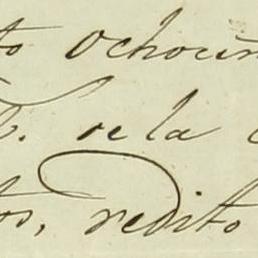 to ochocien
de la
tos, redito